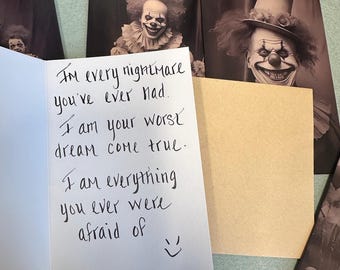 I'm every nightmare
you've ever had.
I am your worst
dream come true.
I am everything
you ever were
afraid of